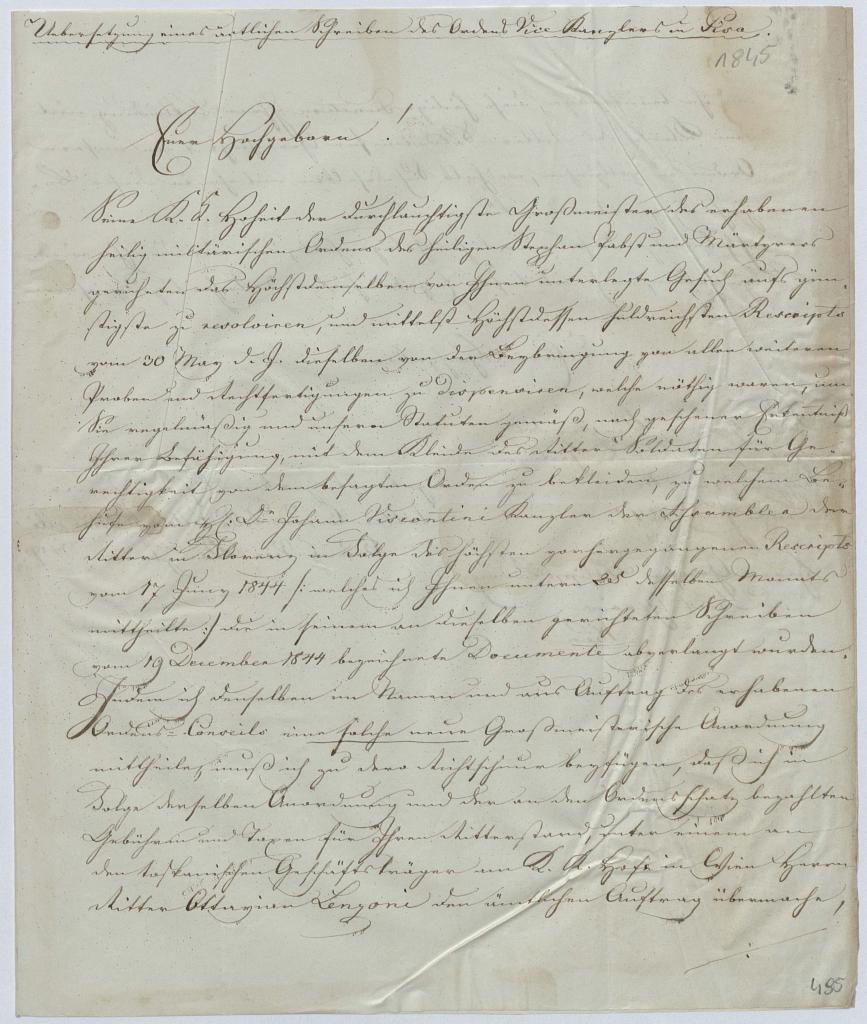 Uebersetzung eines ämtlichen Schreiben des Ordens Vice Kanzlers in Pisa.
1845
Euer Hochgeborn!
Seine K. K. Hoheit der durchlauchtigste Großmeister des erhabenen
heilig militärischen Ordens des heiligen Stephan Pabst und Märtyrers
geruheten das Höchstdemselben von Ihnen unterlegte Gesuch aufs gün-
stigste zu resolviren, und mittelst Höchstdessen huldreichsten Rescripts
vom 30 May d. J. dieselben von der Beybringung von allen weiteren
Proben und Rechtfertigungen zu dispensiren, welche nöthig waren, um
Sie regelmäßig und unsern Statuten gemäß, nach geschener Erkentniß
Ihrer Befähigung, mit dem Kleide des Ritter Soldaten für Ge-
rechtigkeit von dem besagten Orden zu bekleiden, zu welchem Be-
hufe vom H: Dr Johann Viscontini Kanzler der Assamblea der
Ritter in Florenz in Folge des höchsten vorhergegangenen Rescripts
vom 17 Juny 1844 /: welches ich Ihnen unterm 25 desselben Monats
mittheilte :/ die in seinem an dieselben gerichteten Schreiben
vom 19 December 1844 bezeichnete Documente abverlangt wurden.
Indem ich denselben im Namen und aus Auftrag des erhabenen
Ordens-Conseils eine solche neue Großmeisterische Anordnung
mittheile, muß ich zu dero Richtschnur beyfügen, daß ich in
Folge derselben Anordnung und der an den Ordensschatz bezahlten
Gebühren und Taxen für Ihren Ritterstand unter einem an
den toskanischen Geschäftsträger am K. K. Hofe in Wien Herrn
Ritter Ottavian Lenzoni den ämtlichen Auftrag übermache,
495